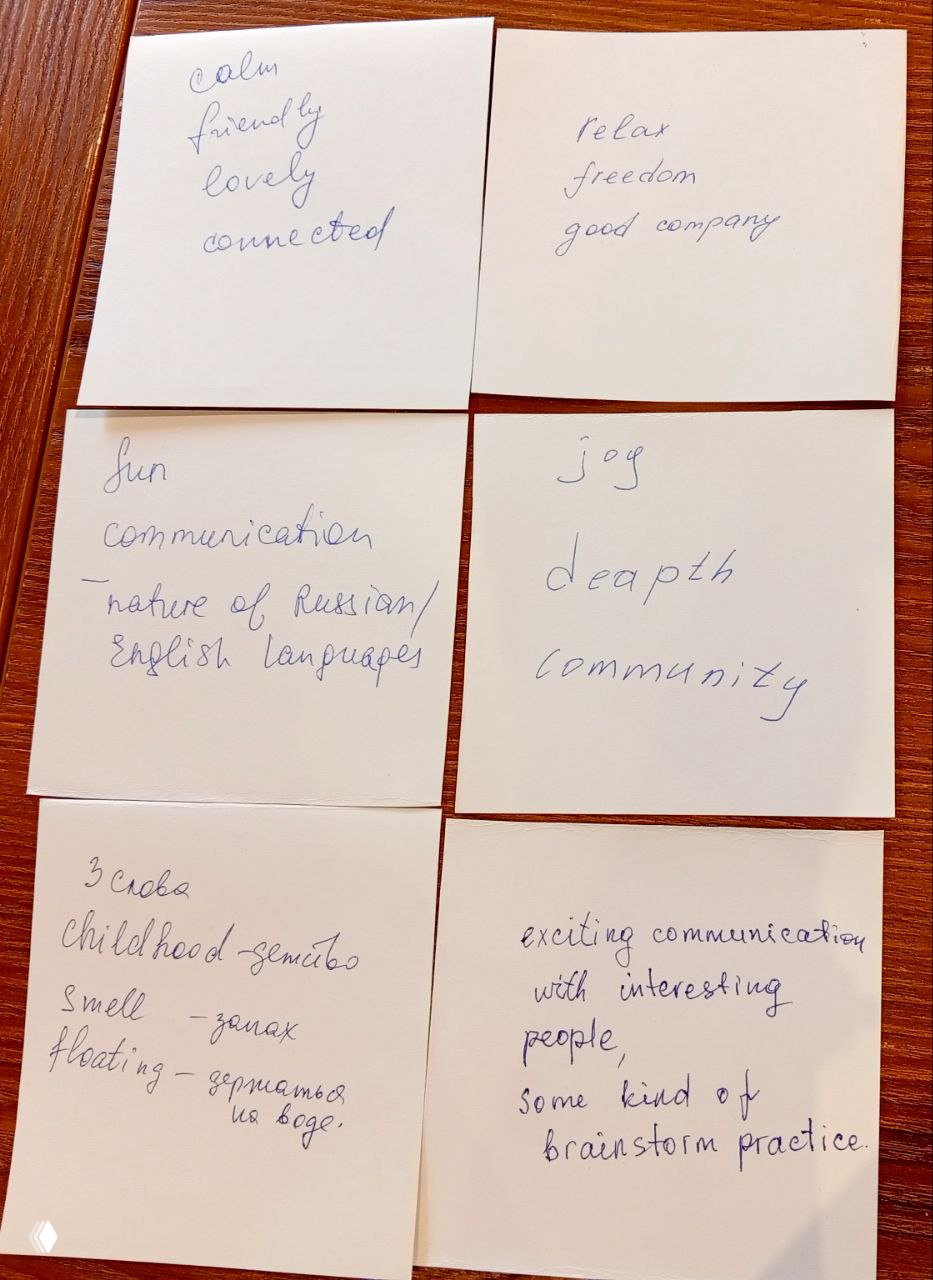 calm
friendly
lovely
connected
relax
freedom
good company
fun
communication
- nature of Russian/
English languages
joy
deapth
community
3 слова
childhood - детство
smell - запах
floating - держаться
на воде.
exciting communication
with interesting
people,
some kind of
brainstorm practice.